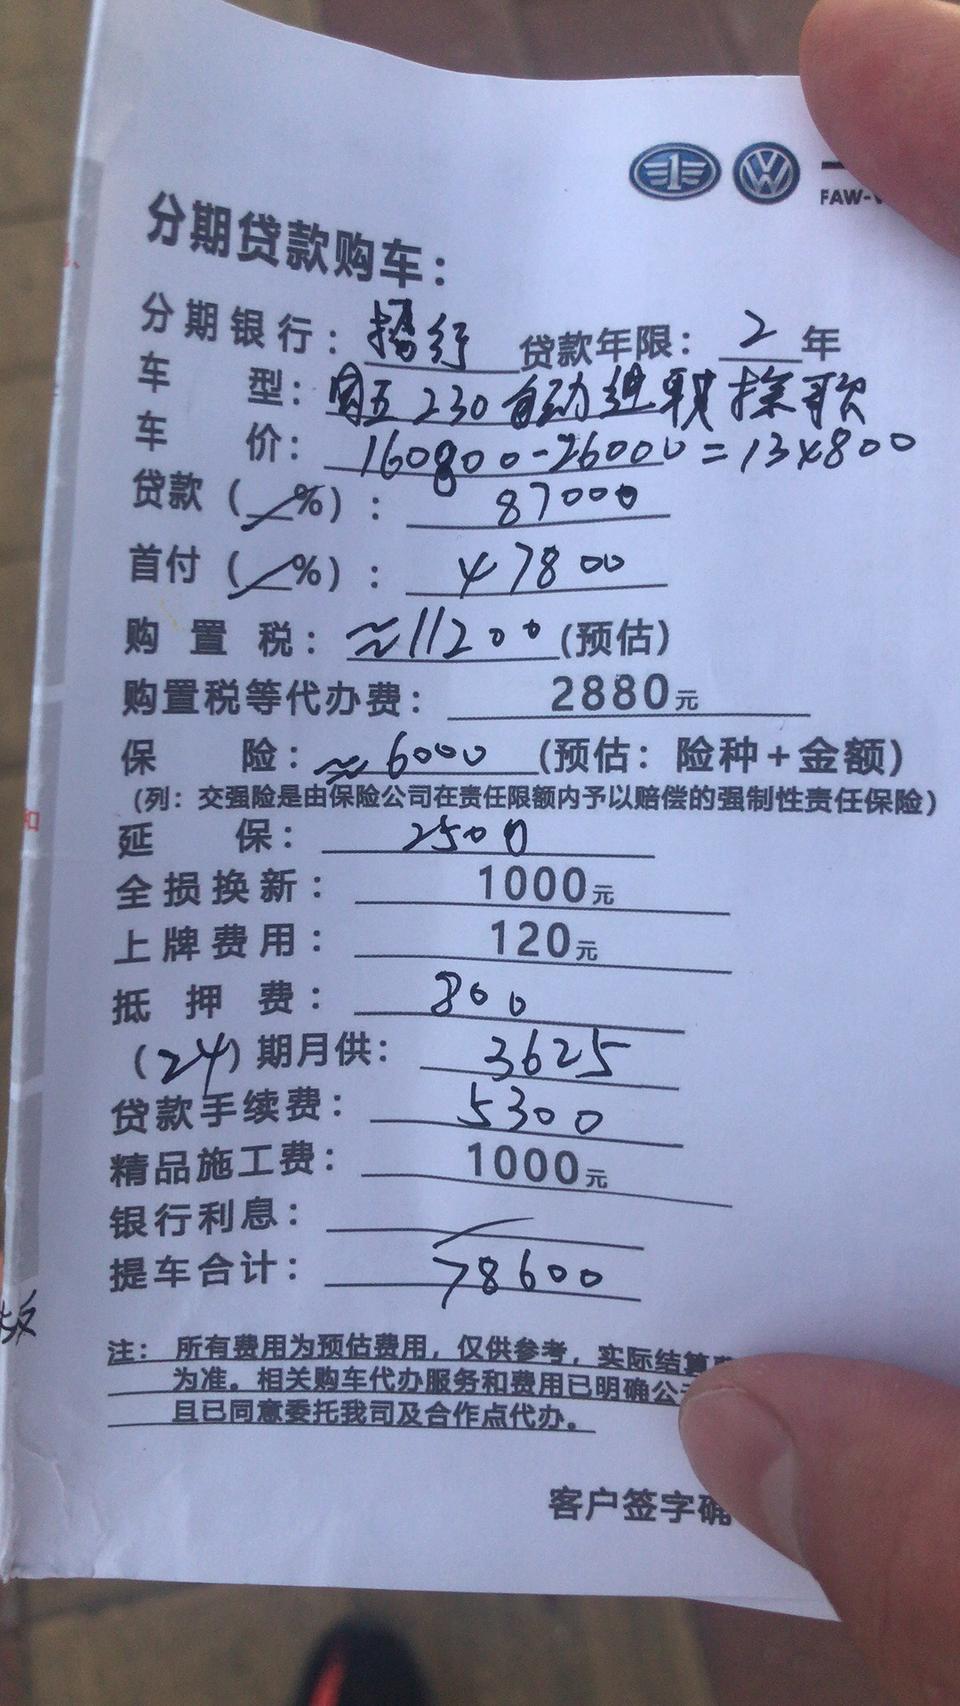 FAW-
分期贷款购车：
分期银行：招行 贷款年限：2年
车型：国五 230 自动进取 探歌
车价：160800-26000=134800
贷款（%）：87000
首付（%）：47800
购置税：≈11200（预估）
购置税等代办费：2880元
保险：≈6000（预估：险种＋金额）
（列：交强险是由保险公司在责任限额内予以赔偿的强制性责任保险）
延保：2500
全损换新：1000元
上牌费用：120元
抵押费：800
（24）期月供：3625
贷款手续费：5300
精品施工费：1000元
银行利息：
提车合计：78600
注：所有费用为预估费用，仅供参考，实际结算
为准。相关购车代办服务和费用已明确公
且已同意委托我司及合作点代办。
客户签字确